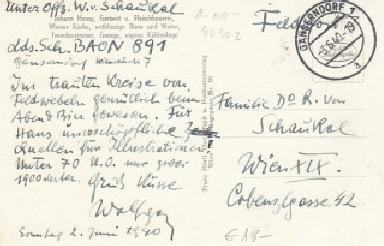 Unter Offz. W. v. Schaukal
Johann Hanny, Gastwirt u. Fleischhauerei,
Wiener Küche, erstklassige Biere und Weine,
Fremdenzimmer, Garage, eigene Kühlanlage
Lds. Sch. BAON 891
Gänserndorf
Im trauten Kreise von
Feldwebeln gemütlich beim
Abend Bier gewesen. Für
Hans unerschöpfliche
Quellen für Illustrationen
Unter 70 U.O. nur zwei
1900er.
Gruß Küsse
Wolfgang
Sonntag 2. Juni 1940
A-no-
90302
Feldpost
GÄNSERNDORF 1
a
Familie Dr R. von
Schaukal
Wien XIX.
Cobenzlgasse 42